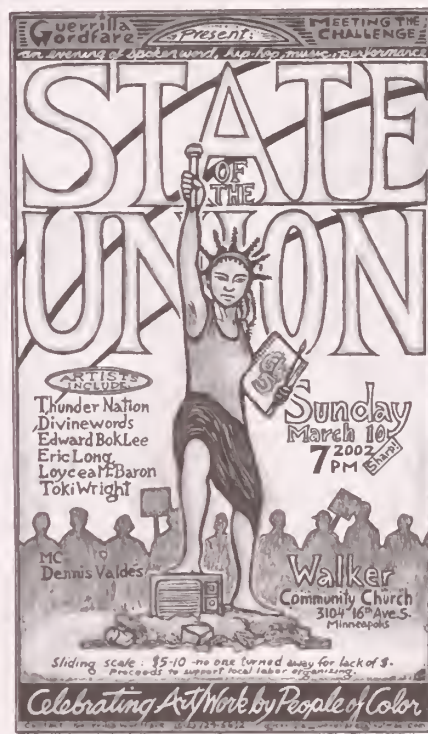 Guerrilla
Wordfare
Present:
MEETING THE
CHALLENGE
an evening of spoken word, hip-hop, music, performance
STATE
OF
THE
UNION
ARTISTS
INCLUDE:
Thunder Nation
Divinewords
Edward Bok Lee
Eric Long
Loycea McBaron
Toki Wright
Sunday
March 10
7 2002
PM Sharp!
MC
Dennis Valdes
Walker
Community Church
3104 16th Ave. S.
Minneapolis
Sliding scale: $5-10 -no one turned away for lack of $.
Proceeds to support local labor organizing.
Celebrating Art/Work by People of Color